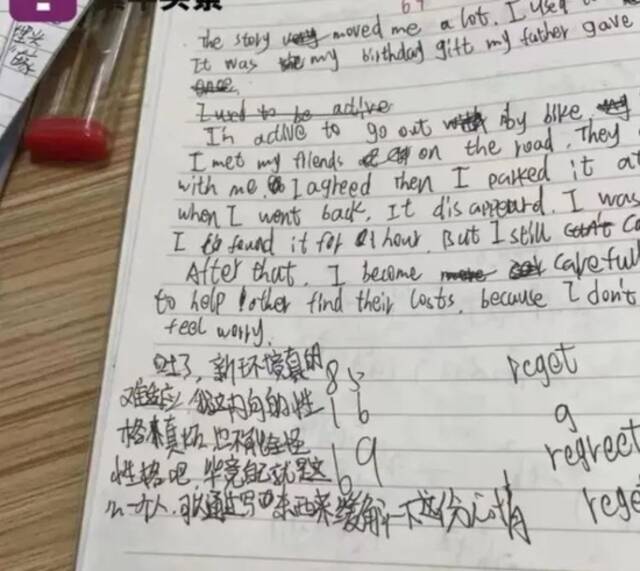 The story moved me a lot. I used
It was my birthday gift my father gave
I used to be active
I'm active to go out by bike.
I met my friends on the road. They
with me. I agreed then I parked it at
when I went back. It disappeard. I was
I found it for 1 hour. But I still can't
After that. I become careful
to help other find their losts. because I don't
feel worry.
吐了,新环境真的
难适应,我这内向的性
格果真坏,也不能全怪
性格吧,毕竟自己就是这
么一个人,可以通过写东西来缓解一下这份心情
85
16
69
reget
g
regrect
rege